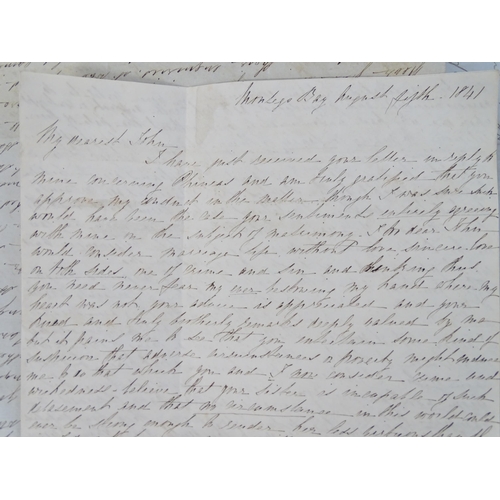 Montego Bay August fifth. 1841
My dearest John,
I have just received your letter in reply to
mine concerning Phineas and am truly gratified that you
approve my conduct in the matter though I was sure such
would have been the case your sentiments entirely agreeing
with mine on the subject of matrimony. I for dear John
would consider marriage life without love sincere love
on both sides one of crime and sin and thinking thus
you need never fear my ever bestowing my hand where my
heart was not your advice is appreciated and your
and truly brotherly remarks deeply valued by me
but it pains me to see that you entertain some kind of
suspicion that adverse circumstances or poverty might induce
me to do that which you and I now consider crime and
wickedness believe that your sister is incapable of such
debasement and that no circumstance in this world could
ever be strong enough to render her less